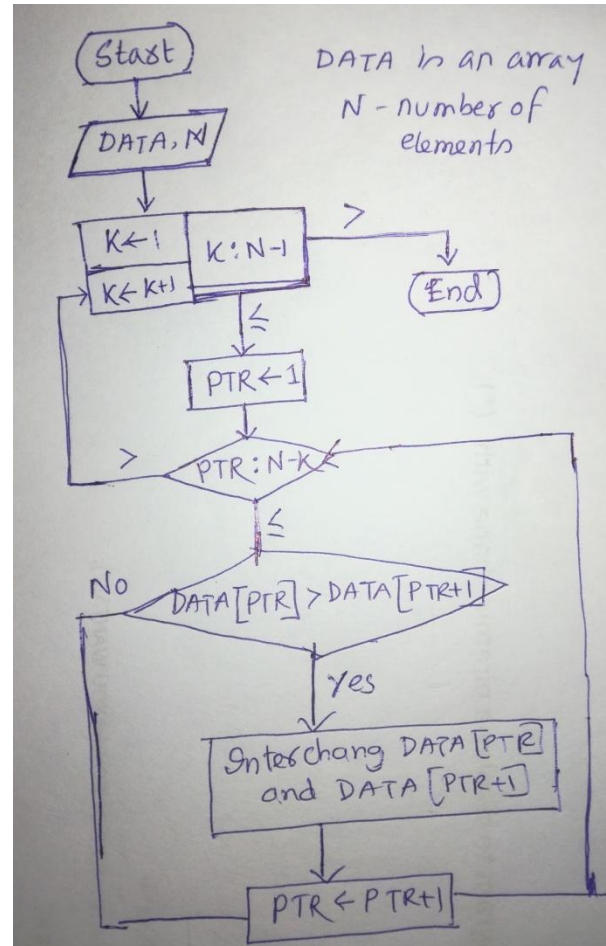 Start
DATA is an array
N - number of
elements
DATA, N
K←1
K←K+1
K:N-1
>
End
≤
PTR←1
>
PTR:N-K
≤
No
DATA[PTR]>DATA[PTR+1]
Yes
Interchang DATA[PTR]
and DATA[PTR+1]
PTR←PTR+1